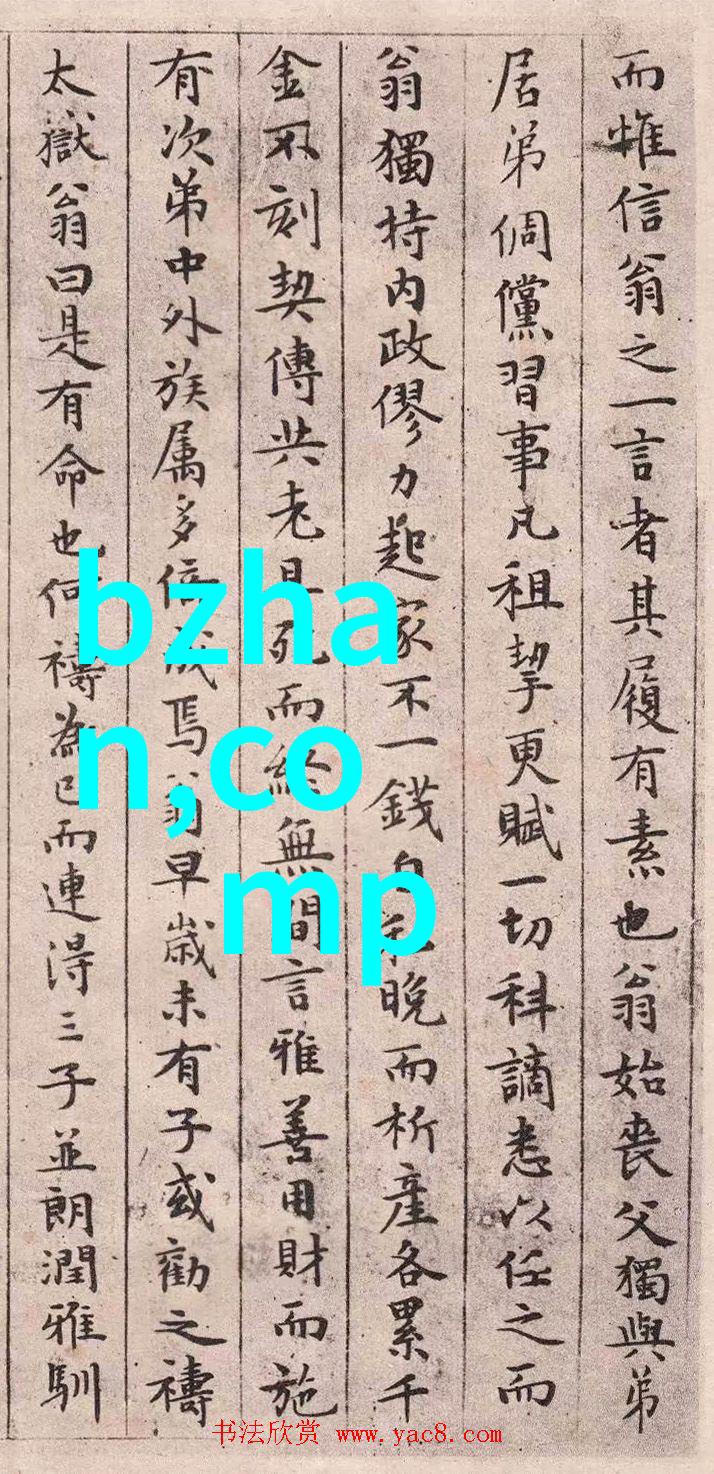 而惟信翁之一言者其履有素也翁始喪父獨與弟
居弟倜儻習事凡租挈更賦一切科謫悉以任之而
翁獨持内政僇力起家不一錢自私晚而析產各累千
金不刻契傅共老且死而終無間言雅善用財而施
有次弟中外族属多焉翁早歲未有子或勸之禱
太嶽翁曰是有命也何禱為已而連得三子並朗潤雅馴
bzha
n,co
mp
书法欣赏 www.yac8.com